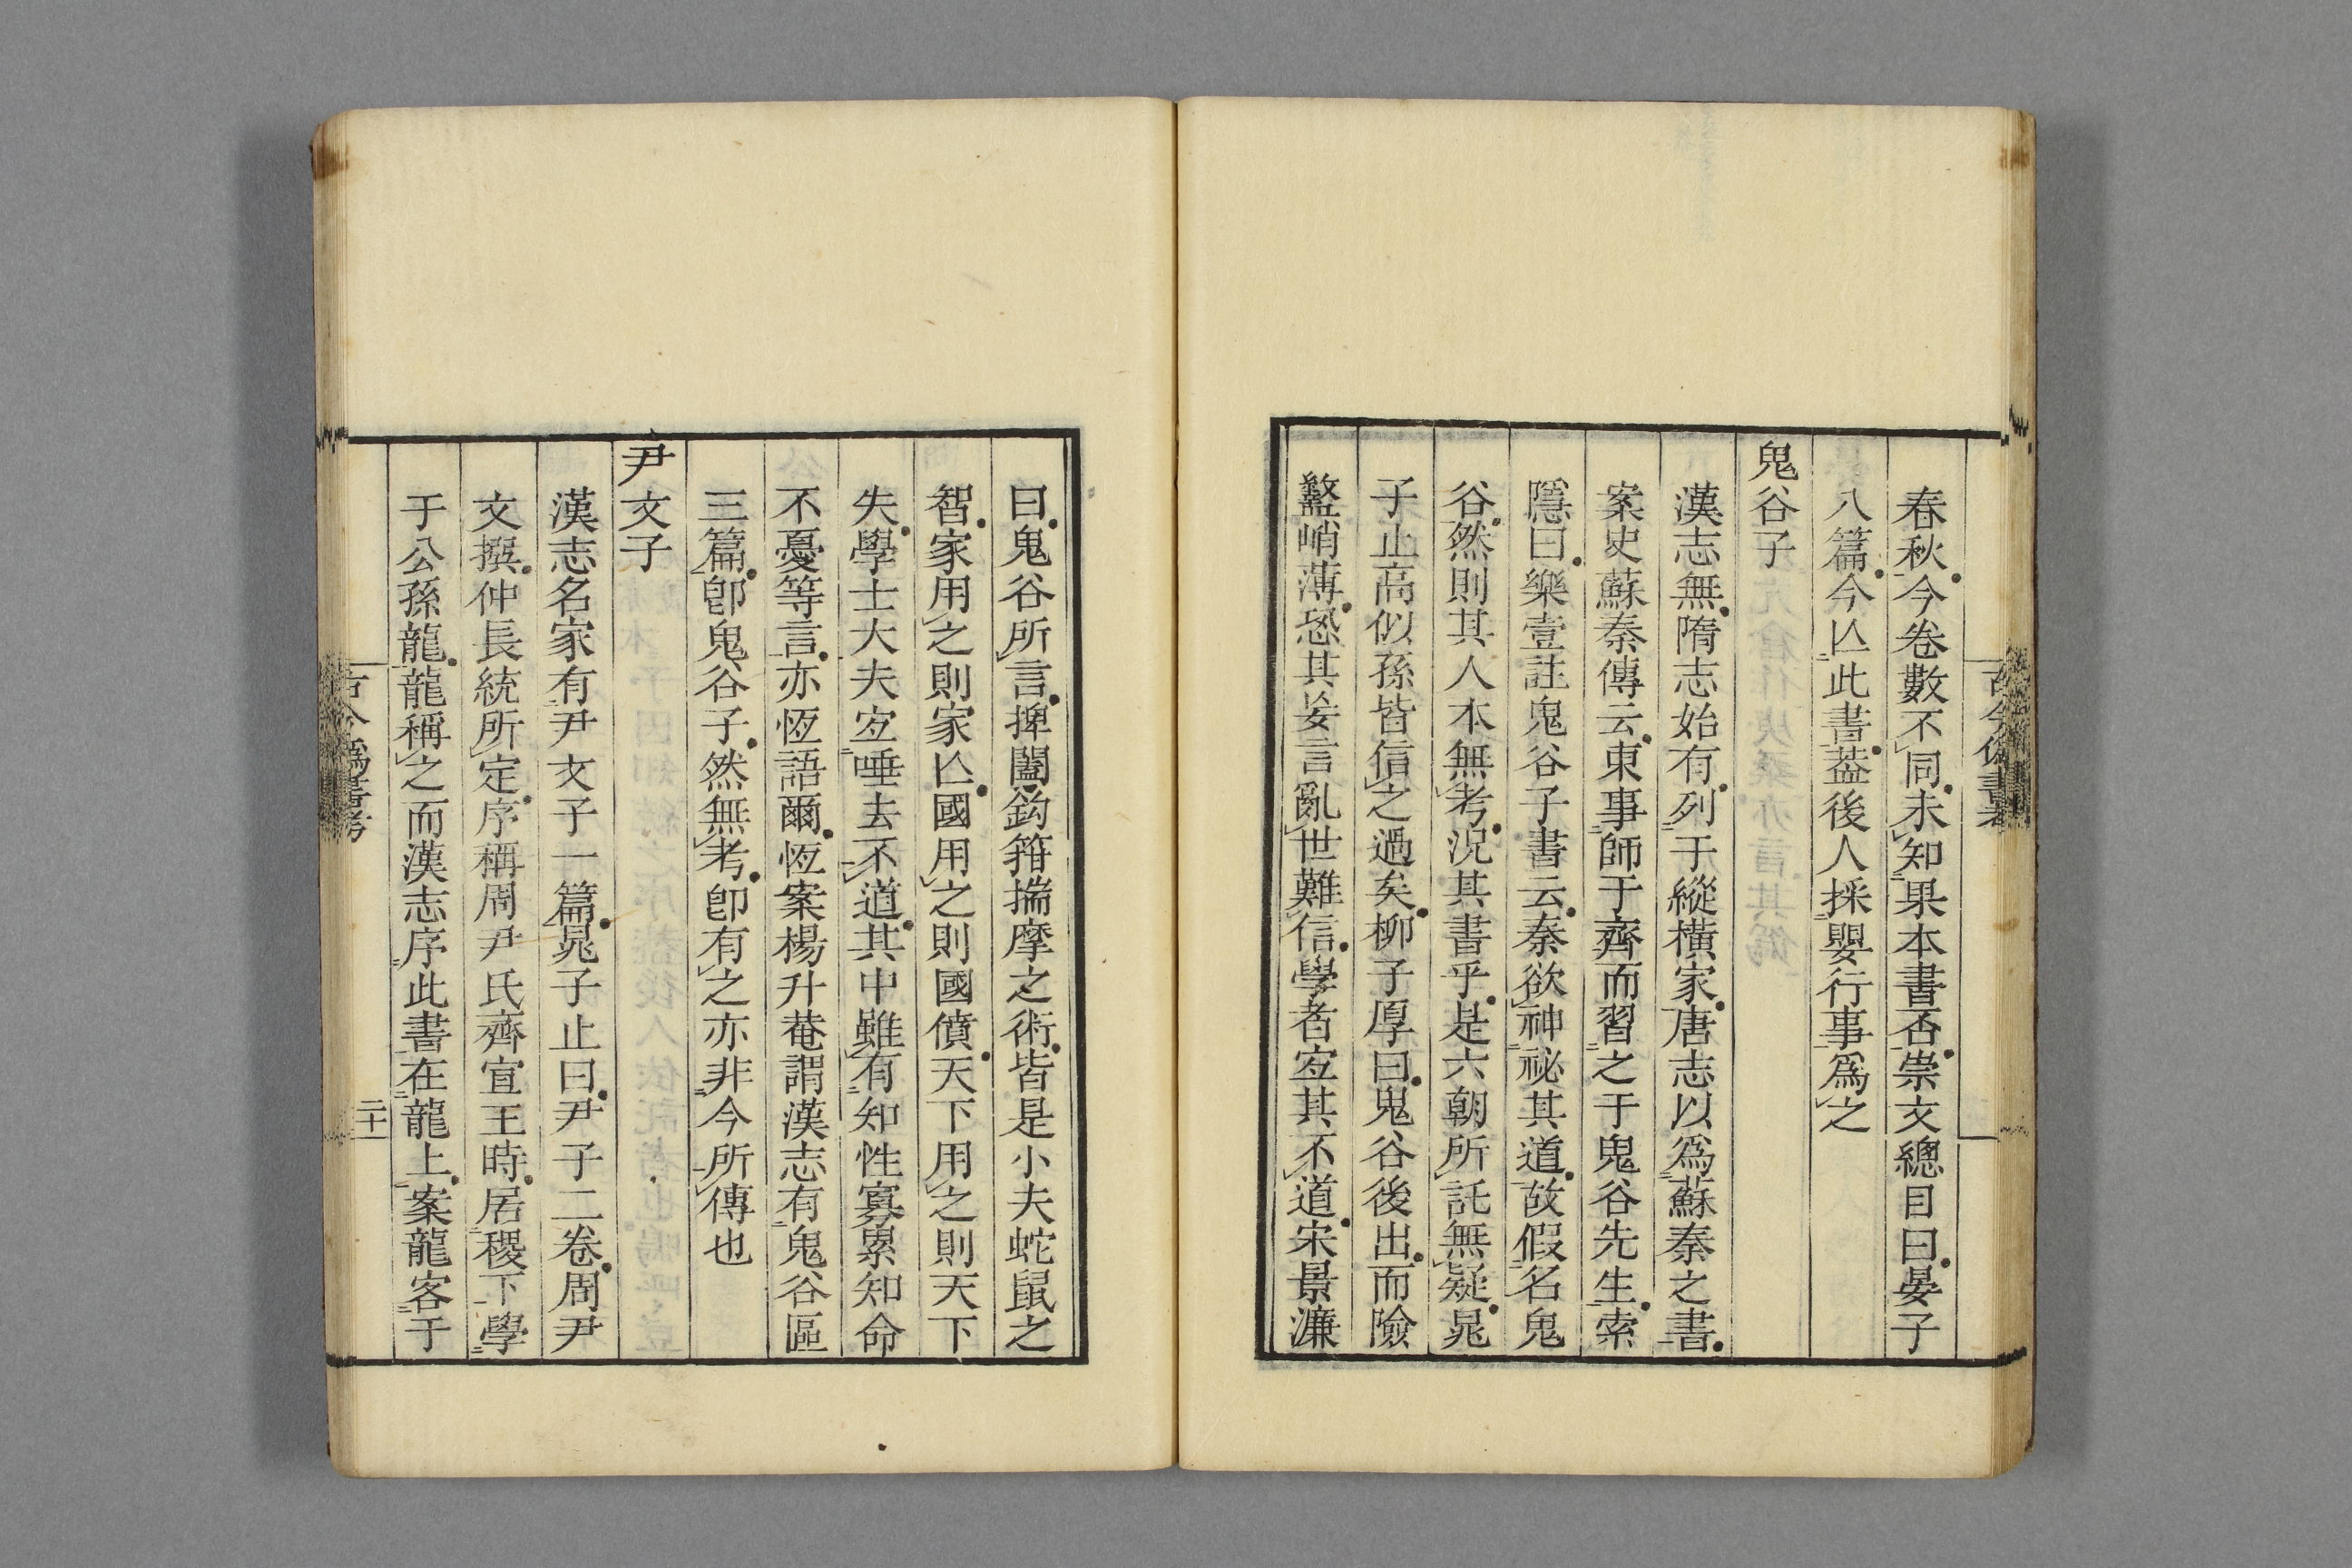 春秋今卷數不同未知果本書否崇文總目曰晏子
八篇今亾此書葢後人採嬰行事爲之
鬼谷子
漢志無隋志始有列于縱橫家唐志以爲蘇秦之書
案史蘇秦傳云東事師于齊而習之于鬼谷先生索
隱曰樂壹註鬼谷子書云秦欲神祕其道故假名鬼
谷然則其人本無考況其書乎是六朝所託無疑晁
子止高似孫皆信之過矣柳子厚曰鬼谷後出而險
盭峭薄恐其妄言亂世難信學者宐其不道宋景濂
曰鬼谷所言捭闔鈎箝揣摩之術皆是小夫蛇鼠之
智家用之則家亾國用之則國僨天下用之則天下
失學士大夫宐唾去不道其中雖有知性寡累知命
不憂等言亦恆語爾恆案楊升菴謂漢志有鬼谷區
三篇卽鬼谷子然無考卽有之亦非今所傳也
尹文子
漢志名家有尹文子一篇晁子止曰尹子二卷周尹
文撰仲長統所定序稱周尹氏齊宣王時居稷下學
于公孫龍龍稱之而漢志序此書在龍上案龍客于
古今僞書考
二十